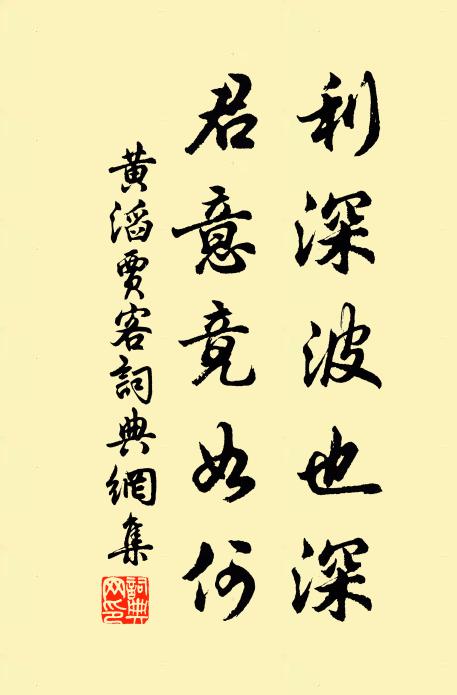 利深波也深
君意竟如何
黄滔賈客詞典網集
詞典网印